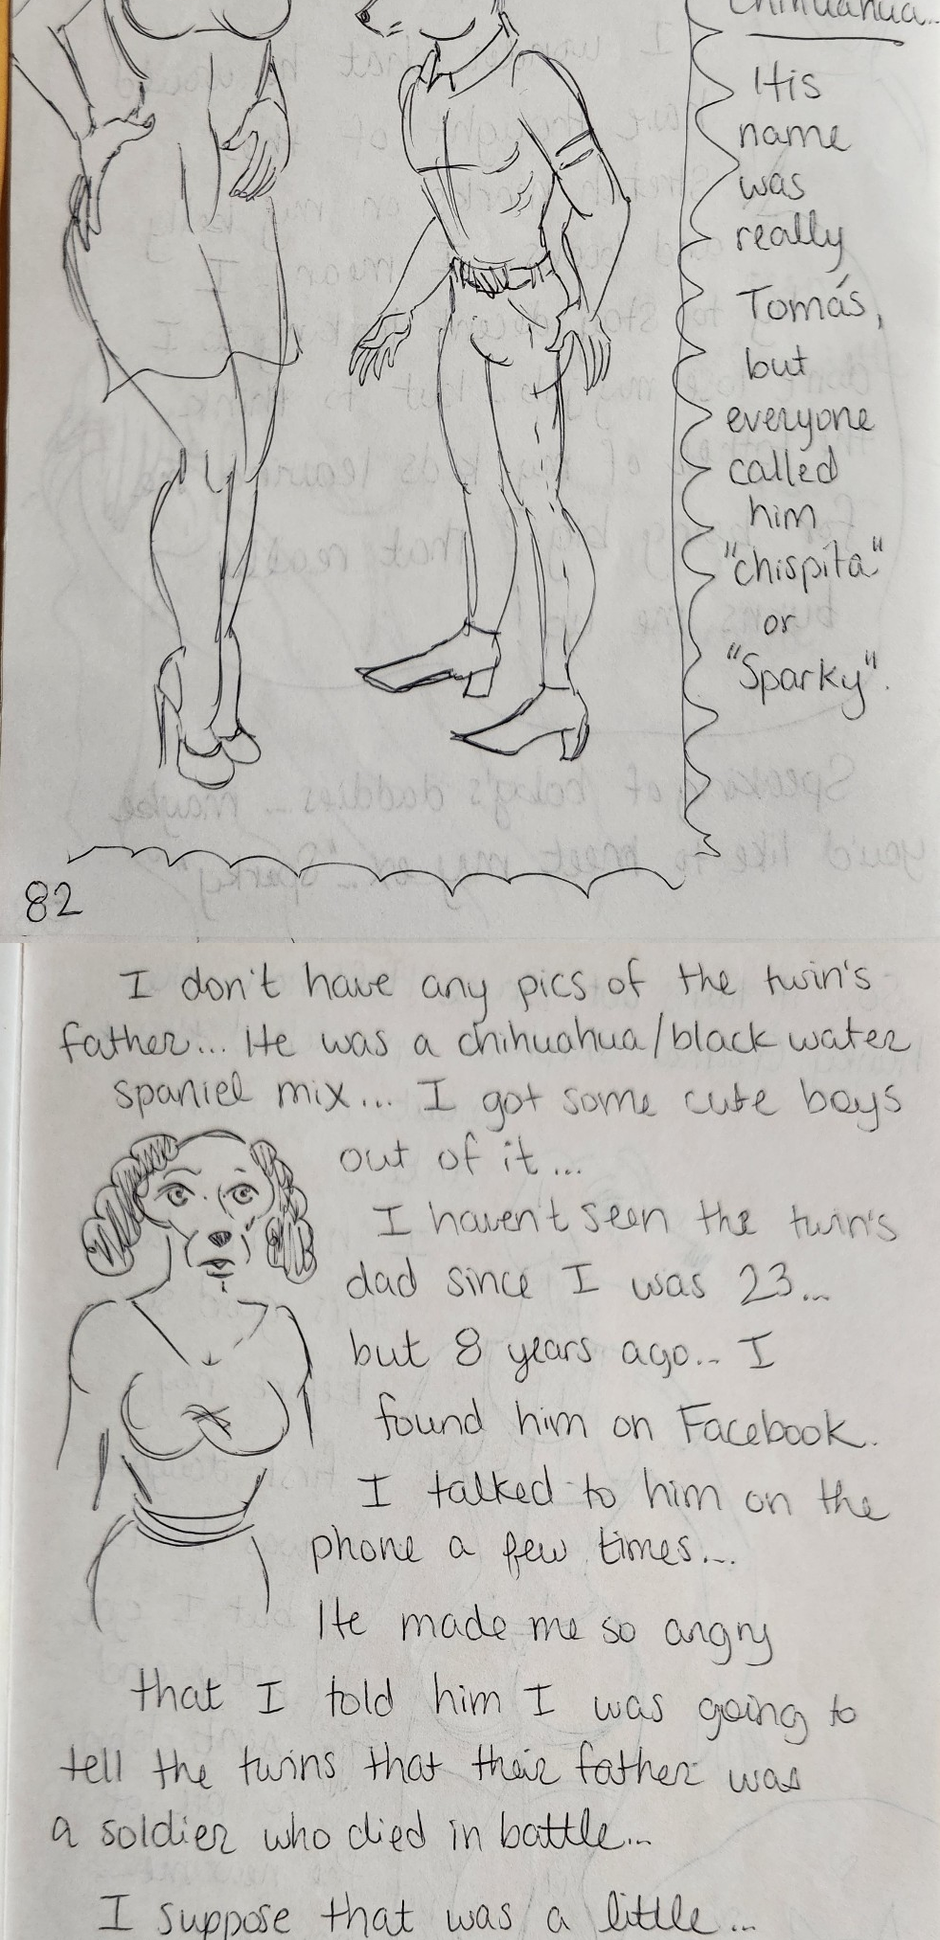 chihuahua...
His
name
was
really
Tomás,
but
everyone
called
him
"chispita"
or
"Sparky".
82
I don't have any pics of the twin's
father... He was a chihuahua/black water
spaniel mix... I got some cute boys
out of it...
I haven't seen the twin's
dad since I was 23...
but 8 years ago... I
found him on Facebook.
I talked to him on the
phone a few times...
He made me so angry
that I told him I was going to
tell the twins that their father was
a soldier who died in battle...
I suppose that was a little...